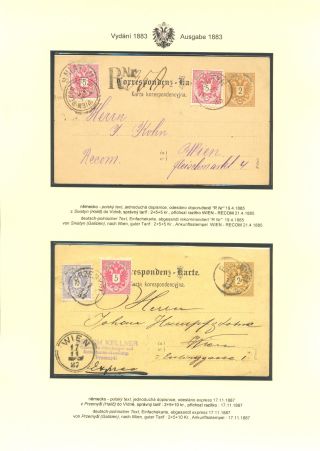 Vydání 1883 Ausgabe 1883
R Nr
Correspondenz-Karte
Karta korespondencyjna.
2
5
5
Herrn
J. Kohn
Wien
Recom. Fleischmarkt 4
německo - polský text, jednoduchá dopisnice, odesláno doporučeně "R Nr" 19.4.1885
z Sniatyn (Halič) do Vídně, správný tarif : 2+5+5 kr., příchozí razítko WIEN - RECOM 21.4.1885
deutsch-polnischer Text, Einfachekarte, abgesandt rekommandiert "R Nr" 19.4.1885
von Sniatyn (Galizien), nach Wien, guter Tarif : 2+5+5 Kr., Ankunftsstempel WIEN - RECOM 21.4.1885
Correspondenz-Karte.
2
5
Herrn
Johann
Wien
KELLNER
WIEN
17
11
87
Express
německo - polský text, jednoduchá dopisnice, odesláno express 17.11.1887
z Przemyśl (Halič) do Vídně, správný tarif : 2+5+10 kr., příchozí razítko : 17.11.1887
deutsch-polnischer Text, Einfachekarte, abgesandt express 17.11.1887
von Przemyśl (Galizien), nach Wien, guter Tarif : 2+5+10 Kr., Ankunftsstempel : 17.11.1887